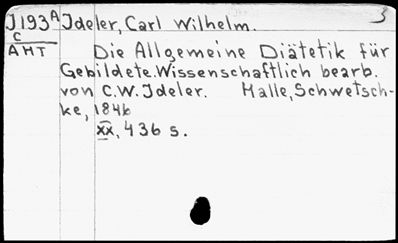 J193A Ideler, Carl Wilhelm. 3
C
AHT Die Allgemeine Diätetik für
Gebildete. Wissenschaftlich bearb.
von C.W. Ideler. Halle, Schwetsch-
ke, 1846
xx, 436 s.